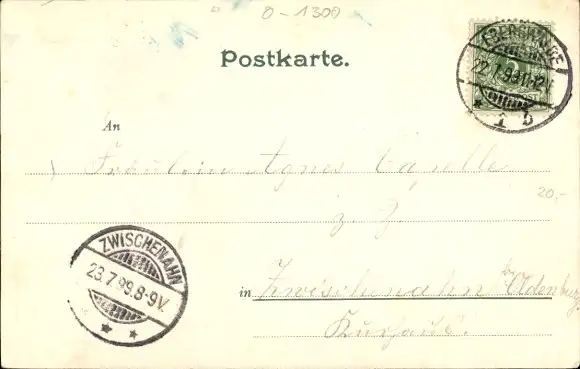 0-1300
Postkarte.
EBERSWALDE
22.7.99.11-12V.
1 b
An
Fräulein Agnes Capelle
z. Z.
20,-
ZWISCHENAHN
23.7.99.8-9V.
in Zwischenahn bei Oldenburg
Kurhaus.